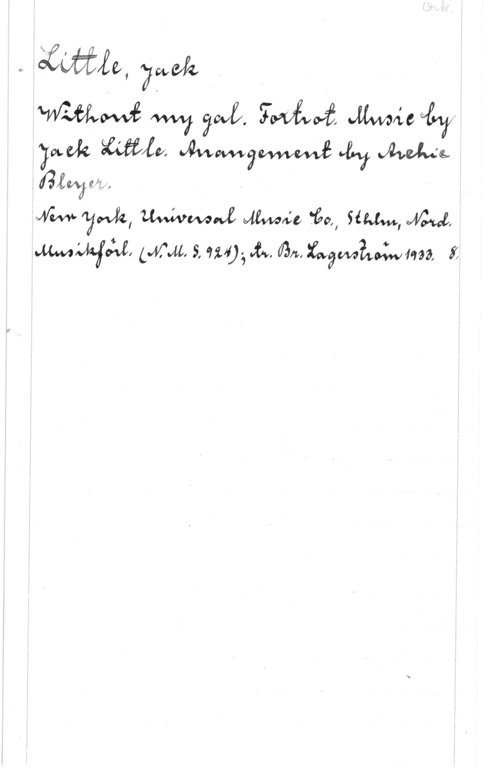 Ork.
Little, Jack
Without my gal. Foxtrot. Music by
Jack Little. Arrangement by Archie
Bleyer.
New York, Universal Music Co., Sthlm, Nord.
Musikförl. (N.M.S. 924); tr. Br. Lagerström 1933. 8.